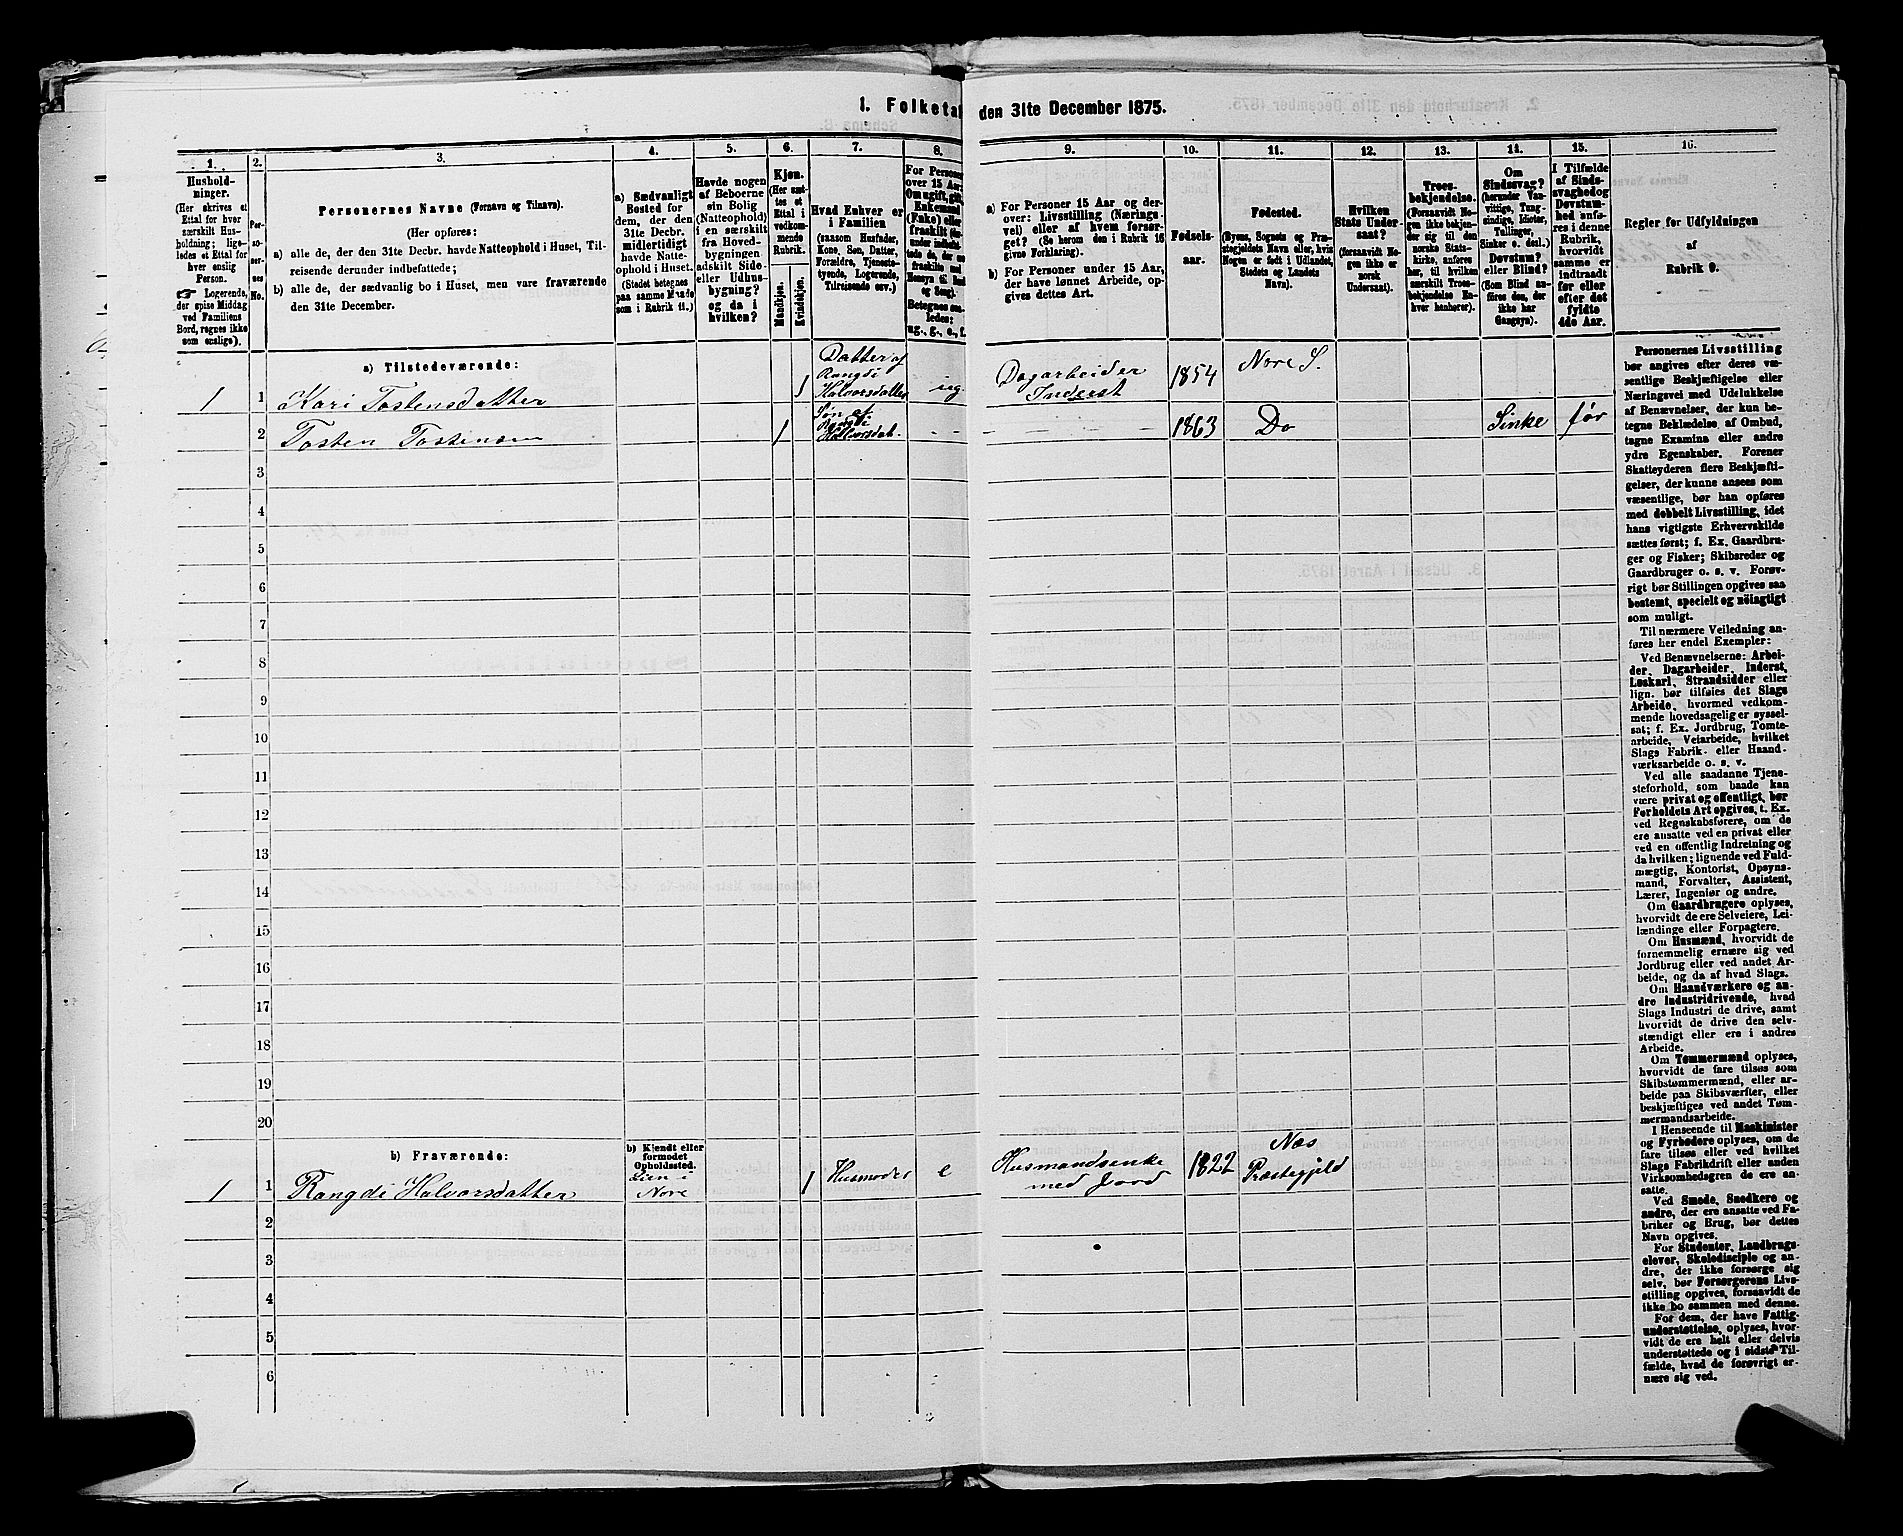 1. Folketal den 31te December 1875.
1.
Hushold-
ninger.
(Her skrives et
Ettal for hver
særskilt Hus-
holdning; lige-
ledes et Ettal for
hver enslig
Person.
☞ Logerende,
der spise Middag
ved Familiens
Bord, regnes ikke
som enslige).
2.
Per-
so-
ner-
nes
No.
3.
Personernes Navne (Fornavn og Tilnavn).
(Her opføres:
a) alle de, der den 31te Decbr. havde Natteophold i Huset, Til-
reisende derunder indbefattede;
b) alle de, der sædvanlig bo i Huset, men vare fraværende
den 31te December.
4.
a) Sædvanligt
Bosted for
dem, der den
31te Decbr.
midlertidigt
havde Natte-
ophold i Huset.
(Stedet betegnes
paa samme Maade
som i Rubrik 11.)
5.
Havde nogen
af Beboerne
sin Bolig
(Natteophold)
i en særskilt
fra Hoved-
bygningen
adskilt Side-
eller Udhus-
bygning?
og da i
hvilken?
6.
Kjøn.
(Her sæt-
tes et
Ettal i
vedkom-
mende
Rubrik.
Mandkjøn.
Kvindekjøn.
7.
Hvad Enhver er
i Familien
(saasom Husfader,
Kone, Søn, Datter,
Forældre, Tjeneste-
tyende, Logerende,
Tilreisende osv.)
8.
For Personer
over 15 Aar:
Om ugift, gift,
Enkemand
(Enke) eller
fraskilt
Betegnes saa-
ledes:
ug., g., e., f.
9.
a) For Personer 15 Aar og der-
over: Livsstilling (Nærings-
vei) eller af hvem forsør-
get? (Se herom den i Rubrik 16
givne Forklaring).
b) For Personer under 15 Aar,
der have lønnet Arbeide, op-
gives dettes Art.
10.
Fødsels-
aar.
11.
Fødested.
(Byens, Sognets og Præ-
stegjeldets Navn eller, hvis
Nogen er født i Udlandet,
Stedets og Landets
Navn).
12.
Hvilken
Stats Under-
saat?
(forsaavidt No-
gen ikke er
norsk
Undersaat).
13.
Troes-
bekjendelse.
(Forsaavidt No-
gen ikke bekjen-
der sig til den
norske Stats-
kirke, anføres
her, til hvilken
særskilt Troes-
bekjendelse En-
hver henhører).
14.
Om
Sindssvag?
(herunder Van-
vittige, Tung-
sindige, Idioter,
Tullinger,
Sinker o. desl.)
Døvstum?
eller Blind?
(Som Blind an-
føres den, der
ikke har
Gangsyn).
15.
I Tilfælde
af Sinds-
svaghed og
Døvstum-
hed anfø-
res i denne
Rubrik,
hvorvidt
samme er
indtraadt
før eller
efter det
fyldte
4de Aar.
16.
Regler for Udfyldningen
af
Rubrik 9.
a) Tilstedeværende:
1 1 Kari Tostensdatter 1 Datter af Rangdi Halvorsdatter ug Dagarbeider Inderst 1854 Nore S.
2 Tosten Tostensen 1 Søn af Rangdi Halvorsdat. - - - - - - 1863 Do Sinke før
3
4
5
6
7
8
9
10
11
12
13
14
15
16
17
18
19
20
b) Fraværende:
b) Kjendt eller
formodet
Opholdssted.
1 1 Rangdi Halvorsdatter Lien i Nore 1 Husmoder e Husmandsenke med Jord 1822 Næs Præstegjeld
2
3
4
5
6
Personernes Livsstilling
bør angives efter deres væ-
sentlige Beskjæftigelse eller
Næringsvei med Udelukkelse
af Benævnelser, der kun be-
tegne Beklædelse, af Ombud,
tagne Examina eller andre
ydre Egenskaber. Forener
Skatteyderen flere Beskjæfti-
gelser, der kunne ansees som
væsentlige, bør han opføres
med dobbelt Livsstilling, idet
hans vigtigste Erhvervskilde
sættes først; f. Ex. Gaardbru-
ger og Fisker; Skibsreder og
Gaardbruger o. s. v. Forøv-
rigt bør Stillingen opgives saa
bestemt, specielt og nøiagtigt
som muligt.
Til nærmere Veiledning an-
føres her endel Exempler:
Ved Benævnelserne: Arbei-
der, Dagarbeider, Inderst,
Løskarl, Strandsidder eller
lign. bør tilføies det Slags
Arbeide, hvormed vedkom-
mende hovedsagelig er syssel-
sat; f. Ex. Jordbrug, Tomte-
arbeide, Veiarbeide, hvilket
Slags Fabrik- eller Haand-
værksarbeide o. s. v.
Ved alle saadanne Tjene-
steforhold, som baade kan
være privat og offentligt, bør
Forholdets Art opgives, t. Ex.
ved Regnskabsførere, om de
ere ansatte ved en privat eller
ved en offentlig Indretning og
da hvilken; lignende ved Fuld-
mægtig, Kontorist, Opsyns-
mand, Forvalter, Assistent,
Lærer, Ingeniør og andre.
Om Gaardbrugere oplyses,
hvorvidt de ere Selveiere, Lei-
lændinge eller Forpagtere.
Om Husmænd, hvorvidt de
fornemmelig ernære sig ved
Jordbrug eller ved andet Ar-
beide, og da af hvad Slags.
Om Haandværkere og an-
dre Industridrivende, hvad
Slags Industri de drive, samt
hvorvidt de drive den selv-
stændigt eller ere i andres
Arbeide.
Om Tømmermænd oplyses,
hvorvidt de fare tilsøs som
Skibstømmermænd, eller ar-
beide paa Skibsværfter, eller
beskjæftiges ved andet Tøm-
mermandsarbeide.
I Henseende til Maskinister
og Fyrbødere oplyses, om de
fare tilsøs eller ved hvilket
Slags Fabrikdrift eller anden
Virksomhedsgren de ere an-
satte.
Ved Smede, Snedkere og
andre, der ere ansatte ved Fa-
briker og Brug, bør dettes
Navn opgives.
For Studenter, Landbrugs-
elever, Skoledisciple og an-
dre, der ikke forsørge sig
selv, bør Forsørgerens Livs-
stilling opgives, forsaavidt de
ikke bo sammen med denne.
For dem, der have Fattig-
understøttelse, oplyses, hvor-
vidt de ere helt eller delvis
understøttede og i sidste Til-
fælde, hvad de forøvrigt er-
nære sig ved.